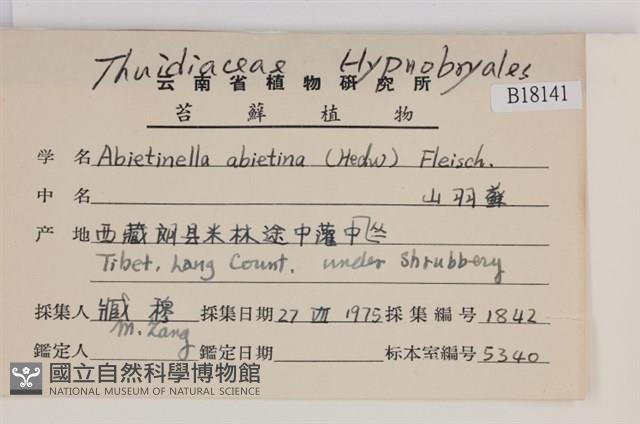 Thuidiaceae Hypnobryales
云南省植物研究所
B18141
苔蘚植物
学名 Abietinella abietina (Hedw) Fleisch.
中名 山羽蘚
产地 西藏朗县米林途中灌中丛
Tibet, Lang Count. under Shrubbery
採集人 臧穆 採集日期 27 VII 1975 採集編号 1842
M. Zang
鑑定人 鑑定日期 标本室編号 5340
國立自然科學博物館
NATIONAL MUSEUM OF NATURAL SCIENCE